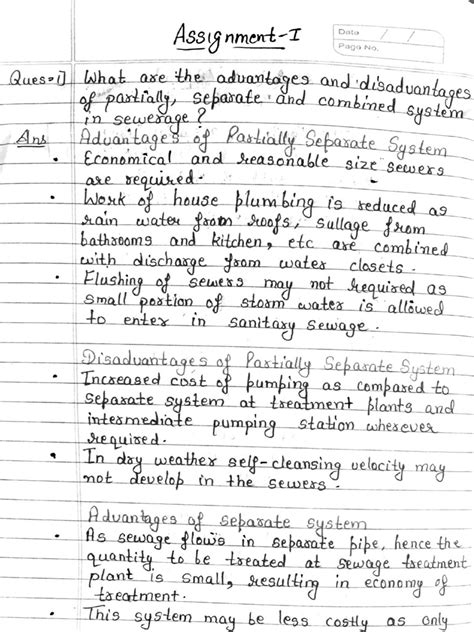 Assignment-I
Date
Page No.
Ques-1] What are the advantages and disadvantages
of partially, separate and combined system
in sewerage?
Ans Advantages of Partially Separate System
• Economical and reasonable size sewers
are required.
• Work of house plumbing is reduced as
rain water from roofs, sullage from
bathrooms and kitchen, etc are combined
with discharge from water closets.
• Flushing of sewers may not required as
small portion of storm water is allowed
to enter in sanitary sewage.
Disadvantages of Partially Separate System
• Increased cost of pumping as compared to
separate system at treatment plants and
intermediate pumping station wherever
required.
• In dry weather self-cleansing velocity may
not develop in the sewers.
Advantages of separate system
• As sewage flows in separate pipe, hence the
quantity to be treated at sewage treatment
plant is small, resulting in economy of
treatment.
• This system may be less costly as only